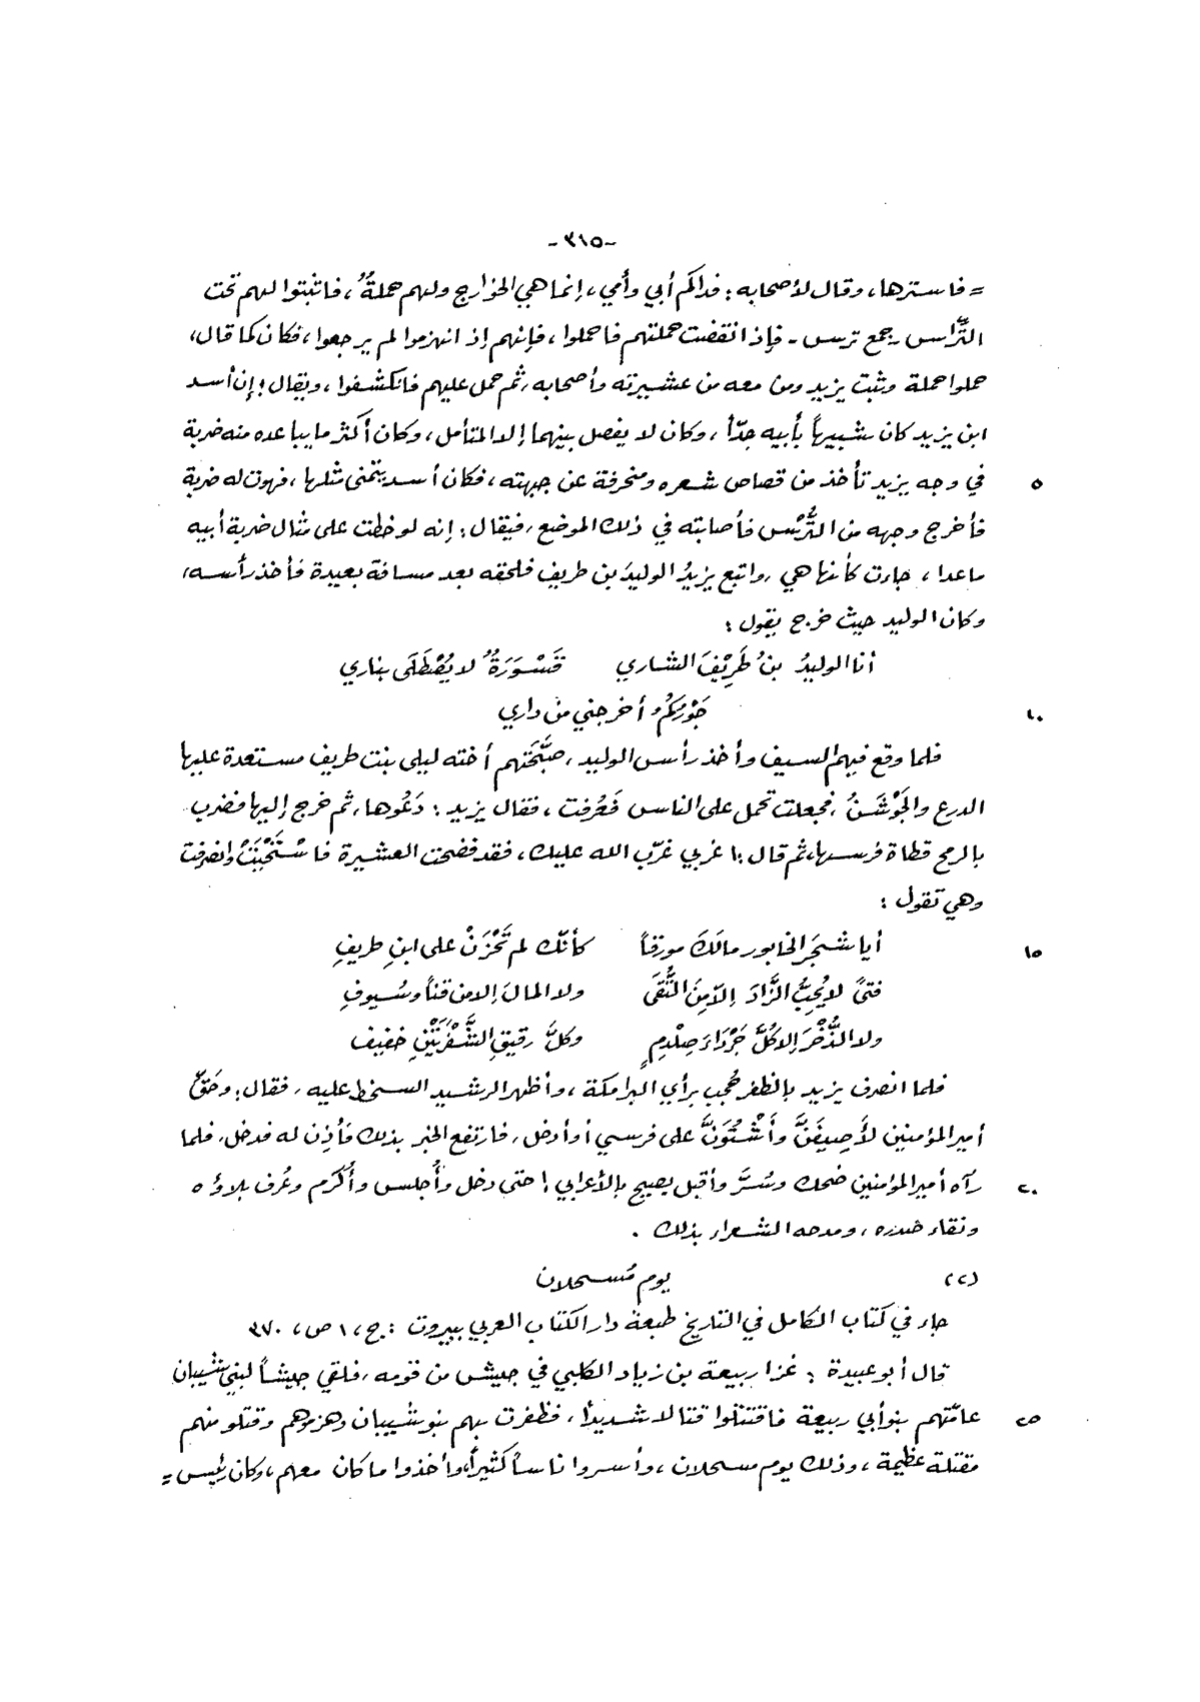 -٣١٥-
= فاسترها، وقال لأصحابه: فداكم أبي وأمي، إنما هي الخوارج ولهم حملةٌ، فاثبتوا لهم تحت
التِّراس - جمع ترس - فإذا انقضت حملتهم فاحملوا، فإنهم إذ انهزموا لم يرجعوا، فكان كما قال،
حملوا حملة وثبت يزيد ومن معه من عشيرته وأصحابه، ثم حمل عليهم فانكشفوا، ويقال: إن أسد
ابن يزيد كان شبيهاً بأبيه جدّاً، وكان لا يفصل بينهما إلا المتأمل، وكان أكثر ما يباعده منه ضربة
في وجه يزيد تأخذ من قصاص شعره ومنحرفة عن جبهته، فكان أسد يتمنى مثلها، فهوت له ضربة ٥
فأخرج وجهه من التُّرْس فأصابته في ذلك الموضع، فيقال: إنه لو خطت على مثال ضربة أبيه
ما عدا، جاءت كأنها هي، واتبع يزيدُ الوليدَ بن طريف فلحقه بعد مسافة بعيدة فأخذ رأسه،
وكان الوليد حيث خرج يقول:
أنا الوليدُ بنُ طَرِيْفَ الشاري قَسْوَرَةٌ لا يُصْطَلَى بناري
جَوْرُكُمُ أخرجني من داري ١٠
فلما وقع فيهم السيف وأخذ رأس الوليد، صَبَّحَتهم أخته ليلى بنت طريف مستعدة عليها
الدرع والجَوْشَنُ، فجعلت تحمل على الناس فَعُرفت، فقال يزيد: دَعُوها، ثم خرج إليها فضرب
بالرمح قطاة فرسها، ثم قال: اغربي غرّب الله عليك، فقد فضحت العشيرة فاسْتَحْيَتْ وانصرفت
وهي تقول:
أيا شجَر الخابور مالَكَ مورقاً كأنّك لم تَحْزَنْ على ابنِ طريفِ ١٥
فتىً لا يُحِبُّ الزَّادَ إلّا مِنَ التُّقَى ولا المالَ إلا من قناً وسُيوفِ
ولا الذُّخْرَ إلا كُلَّ جَرْدَاءَ صِلْدِمٍ وكلَّ رقيقِ الشَّفْرَتَيْنِ خفيف
فلما انصرف يزيد بالظفر حُجب برأي البرامكة، وأظهر الرشيد السخط عليه، فقال: وحَقِّ
أمير المؤمنين لأَصِيفَنَّ وأَشْتُوَنَّ على فرسي أو أدخل، فارتفع الخبر بذلك فأذن له فدخل، فلما
رآه أمير المؤمنين ضحك وسُرَّ وأقبل يصيح بالأعرابي! حتى دخل وأُجلس وأُكرم وعُرف بلاؤه ٢٠
ونقاء صدره، ومدحه الشعراء بذلك.
(٢) يوم مُسحلان
جاء في كتاب الكامل في التاريخ طبعة دار الكتاب العربي ببيروت: ج، ١ ص، ٣٧٠
قال أبو عبيدة: غزا ربيعة بن زياد الكلبي في جيش من قومه، فلقي جيشاً لبني شيبان
عامّتهم بنو أبي ربيعة فاقتتلوا قتالا شديداً، فظفرت بهم بنو شيبان وهزموهم وقتلو منهم ٢٥
مقتلة عظيمة، وذلك يوم مسحلان، وأسروا ناساً كثيراً، وأخذوا ما كان معهم، وكان رئيس =